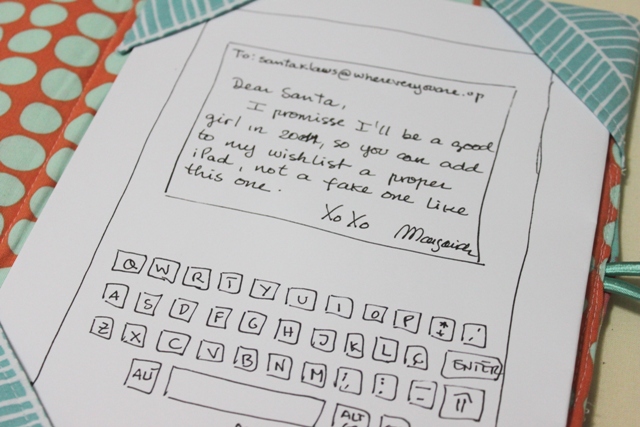 To: santaklaws@whereveryouare.op
Dear Santa,
I promisse I'll be a good
girl in so you can add
to my wishlist a proper
iPad, not a fake one like
this one.
Xo Xo
Q W R T Y U I O P
A S D F G H J K L Ç ENTER
Z X C V B N M ; : _
ALT ALT